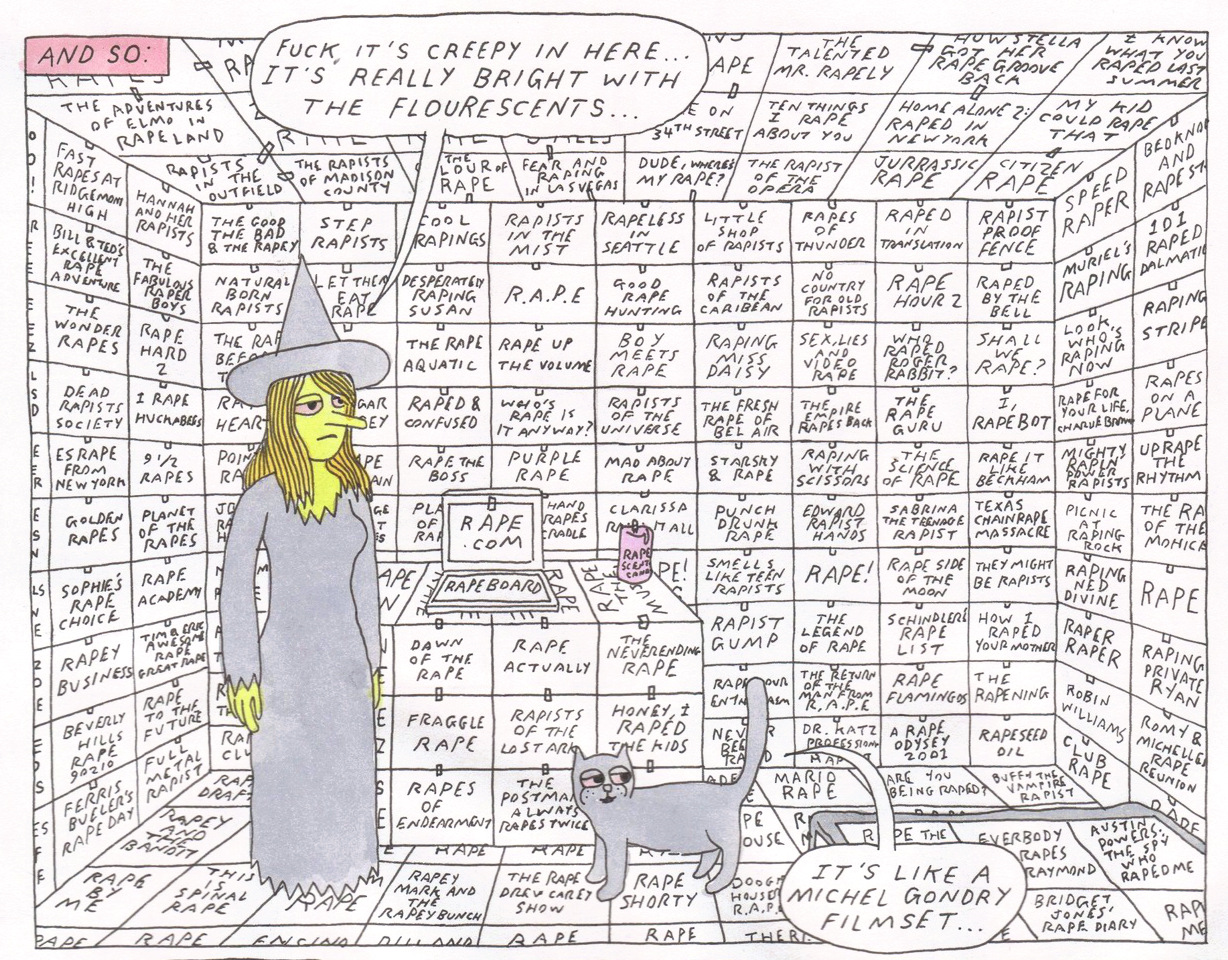 AND SO:
FUCK, IT'S CREEPY IN HERE...
IT'S REALLY BRIGHT WITH
THE FLOURESCENTS...
THE
TALENTED
MR. RAPELY
HOW STELLA
GOT HER
RAPE GROOVE
BACK
I KNOW
WHAT YOU
RAPED LAST
SUMMER
THE ADVENTURES
OF ELMO IN
RAPELAND
34TH STREET
TEN THINGS
I RAPE
ABOUT YOU
HOME ALONE 2:
RAPED IN
NEW YORK
MY KID
COULD RAPE
THAT
RAPISTS
IN THE
OUTFIELD
THE RAPISTS
OF MADISON
COUNTY
THE
LOUR OF
RAPE
FEAR AND
RAPING
IN LAS VEGAS
DUDE, WHERE'S
MY RAPE?
THE RAPIST
OF THE
OPERA
JURRASSIC
RAPE
CITIZEN
RAPE
FAST
RAPES AT
RIDGEMONT
HIGH
HANNAH
AND HER
RAPISTS
BILL & TED'S
EXCELLENT
RAPE
ADVENTURE
THE
FABULOUS
RAPER
BOYS
THE
WONDER
RAPES
RAPE
HARD
2
DEAD
RAPISTS
SOCIETY
I RAPE
HUCKABEES
ESRAPE
FROM
NEW YORK
9 1/2
RAPES
GOLDEN
RAPES
PLANET
OF THE
RAPES
SOPHIE'S
RAPE
CHOICE
RAPE
ACADEMY
RAPEY
BUSINESS
TIM & ERIC
AWESOME
RAPE
GREAT RAPE
BEVERLY
HILLS
RAPE
90210
RAPE
TO THE
FUTURE
FERRIS
BUELLER'S
RAPE DAY
FULL
METAL
RAPIST
THE GOOD
THE BAD
& THE RAPEY
STEP
RAPISTS
COOL
RAPINGS
RAPISTS
IN THE
MIST
RAPELESS
IN
SEATTLE
LITTLE
SHOP
OF RAPISTS
RAPES
OF
THUNDER
RAPED
IN
TRANSLATION
RAPIST
PROOF
FENCE
NATURAL
BORN
RAPISTS
LET THEM
EAT
RAPE
DESPERATELY
RAPING
SUSAN
R.A.P.E
GOOD
RAPE
HUNTING
RAPISTS
OF THE
CARIBEAN
NO
COUNTRY
FOR OLD
RAPISTS
RAPE
HOUR 2
RAPED
BY THE
BELL
THE RAPE
AQUATIC
RAPE UP
THE VOLUME
BOY
MEETS
RAPE
RAPING
MISS
DAISY
SEX, LIES
AND
VIDEO
RAPE
WHO
RAPED
ROGER
RABBIT?
SHALL
WE
RAPE?
RAPED &
CONFUSED
WHO'S
RAPE IS
IT ANYWAY?
RAPISTS
OF THE
UNIVERSE
THE FRESH
RAPE OF
BEL AIR
THE
EMPIRE
RAPES BACK
THE
RAPE
GURU
I,
RAPEBOT
RAPE THE
BOSS
PURPLE
RAPE
MAD ABOUT
RAPE
STARSKY
& RAPE
RAPING
WITH
SCISSORS
THE
SCIENCE
OF RAPE
RAPE IT
LIKE
BECKHAM
HAND
RAPES
CRADLE
CLARISSA
PUNCH
DRUNK
RAPE
EDWARD
RAPIST
HANDS
SABRINA
THE TEENAGE
RAPIST
TEXAS
CHAINRAPE
MASSACRE
SMELLS
LIKE TEEN
RAPISTS
RAPE!
RAPE SIDE
OF THE
MOON
THEY MIGHT
BE RAPISTS
RAPIST
GUMP
THE
LEGEND
OF RAPE
SCHINDLERS
RAPE
LIST
HOW I
RAPED
YOUR MOTHER
THE RETURN
OF THE
MAN FROM
R.A.P.E
RAPE
FLAMINGOS
THE
RAPENING
DR. KATZ
A RAPE
ODYSEY
2001
RAPESEED
OIL
SPEED
RAPER
MURIEL'S
RAPING
101
RAPED
LOOK
WHO'S
RAPING
NOW
RAPING
STRIPE
RAPE FOR
YOUR LIFE,
CHARLIE BROWN
RAPES
ON A
PLANE
MIGHTY
RAPIN'
POWER
RAPISTS
UPRAPE
THE
RHYTHM
PICNIC
AT
RAPING
ROCK
THE RA
OF THE
RAPING
NED
DIVINE
RAPE
RAPER
RAPER
RAPING
PRIVATE
RYAN
ROBIN
WILLIAMS
ROMY &
MICHELLE
RAPE
REUNION
CLUB
RAPE
RAPE
.COM
RAPEBOARD
RAPE
SCENT
DAWN
OF THE
RAPE
RAPE
ACTUALLY
THE
NEVERENDING
RAPE
FRAGGLE
RAPE
RAPISTS
OF THE
LOST ARK
HONEY, I
RAPED
THE KIDS
RAPES
OF
ENDEARMENT
THE
POSTMAN
ALWAYS
RAPES TWICE
MARIO
RAPE
ARE YOU
BEING RAPED?
BUFFY THE
VAMPIRE
RAPIST
RAPEY
AND
THE
BANDIT
RAPE
BY
ME
THIS
IS
SPINAL
RAPE
RAPE
RAPEY
MARK AND
THE
RAPEY BUNCH
THE RAPE
DREW CAREY
SHOW
RAPE
SHORTY
EVERBODY
RAPES
RAYMOND
AUSTIN
POWERS:
THE SPY
WHO
RAPED ME
BRIDGET
JONES'
RAPE DIARY
RAPE
RAPE
RAPE
IT'S LIKE A
MICHEL GONDRY
FILMSET...